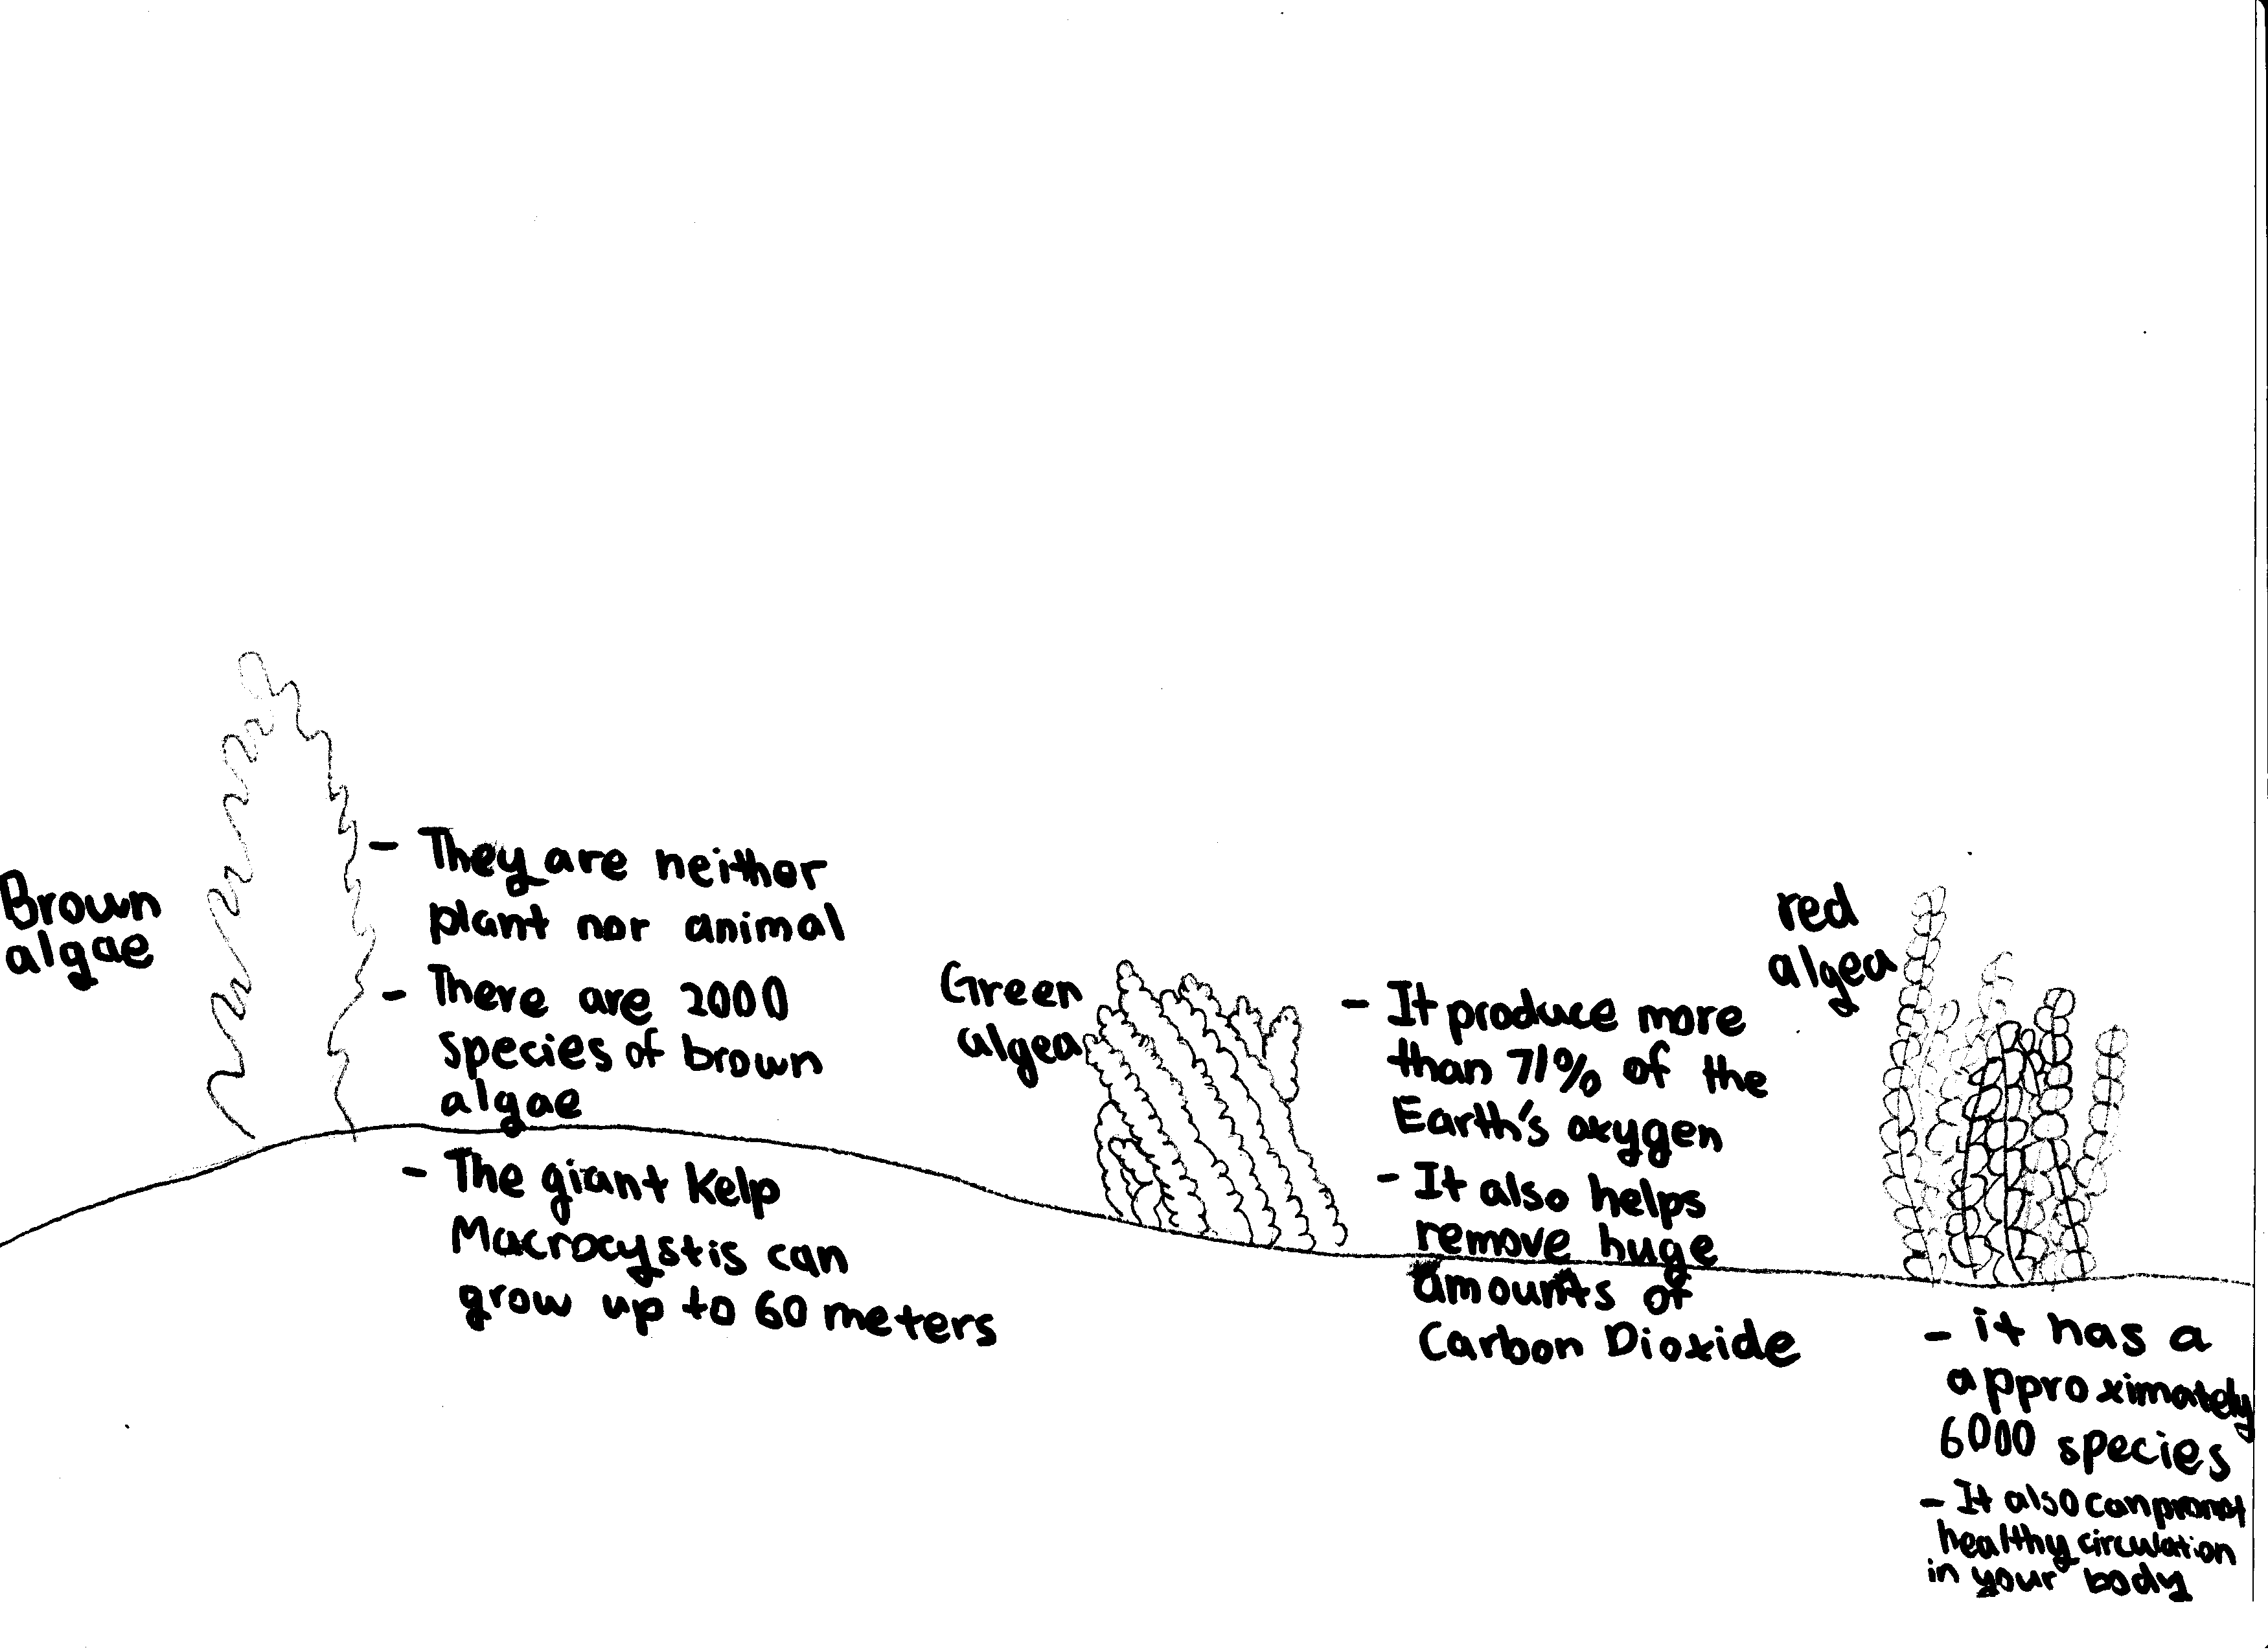 Brown
algae
- They are neither
plant nor animal
- There are 2000
species of brown
algae
- The giant Kelp
Macrocystis can
grow up to 60 meters
Green
algea
- It produce more
than 71% of the
Earth's oxygen
- It also helps
remove huge
amounts of
Carbon Dioxide
red
algea
- it has a
approximately
6000 species
- It also can promot
healthy circulation
in your body